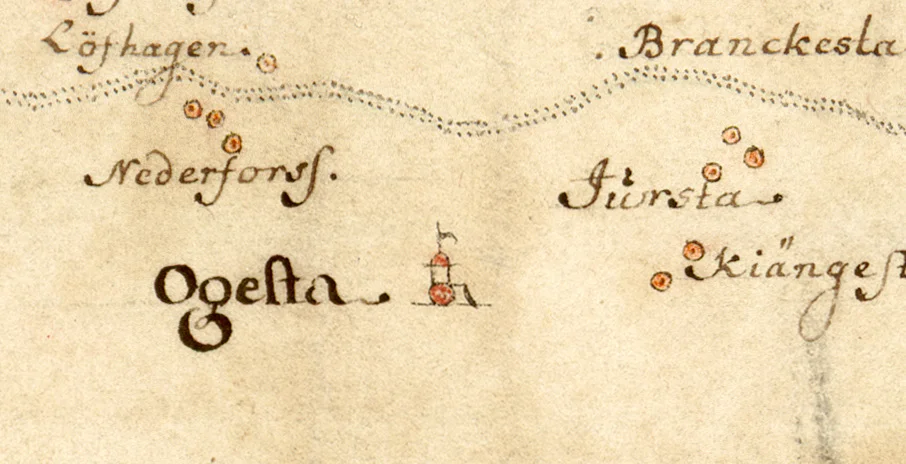 Löfhagen.
Branckesta
Nederforsſ.
Jursta
Ogeſta
Kiängeſt